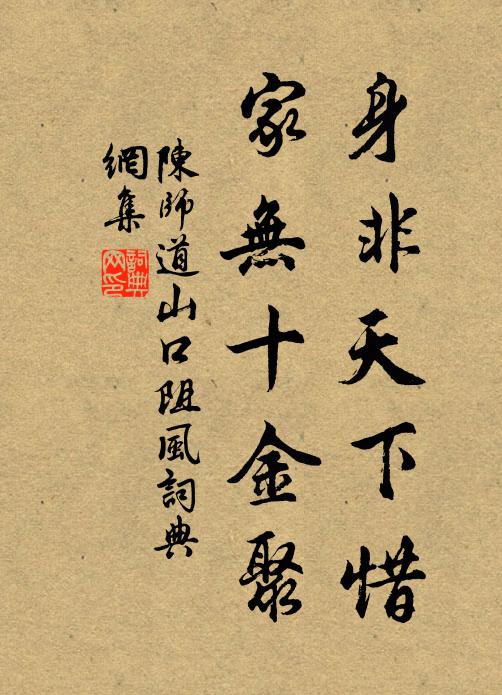 身非天下惜
家無十金聚
陳師道山口阻風詞典
網集
詞典
网印